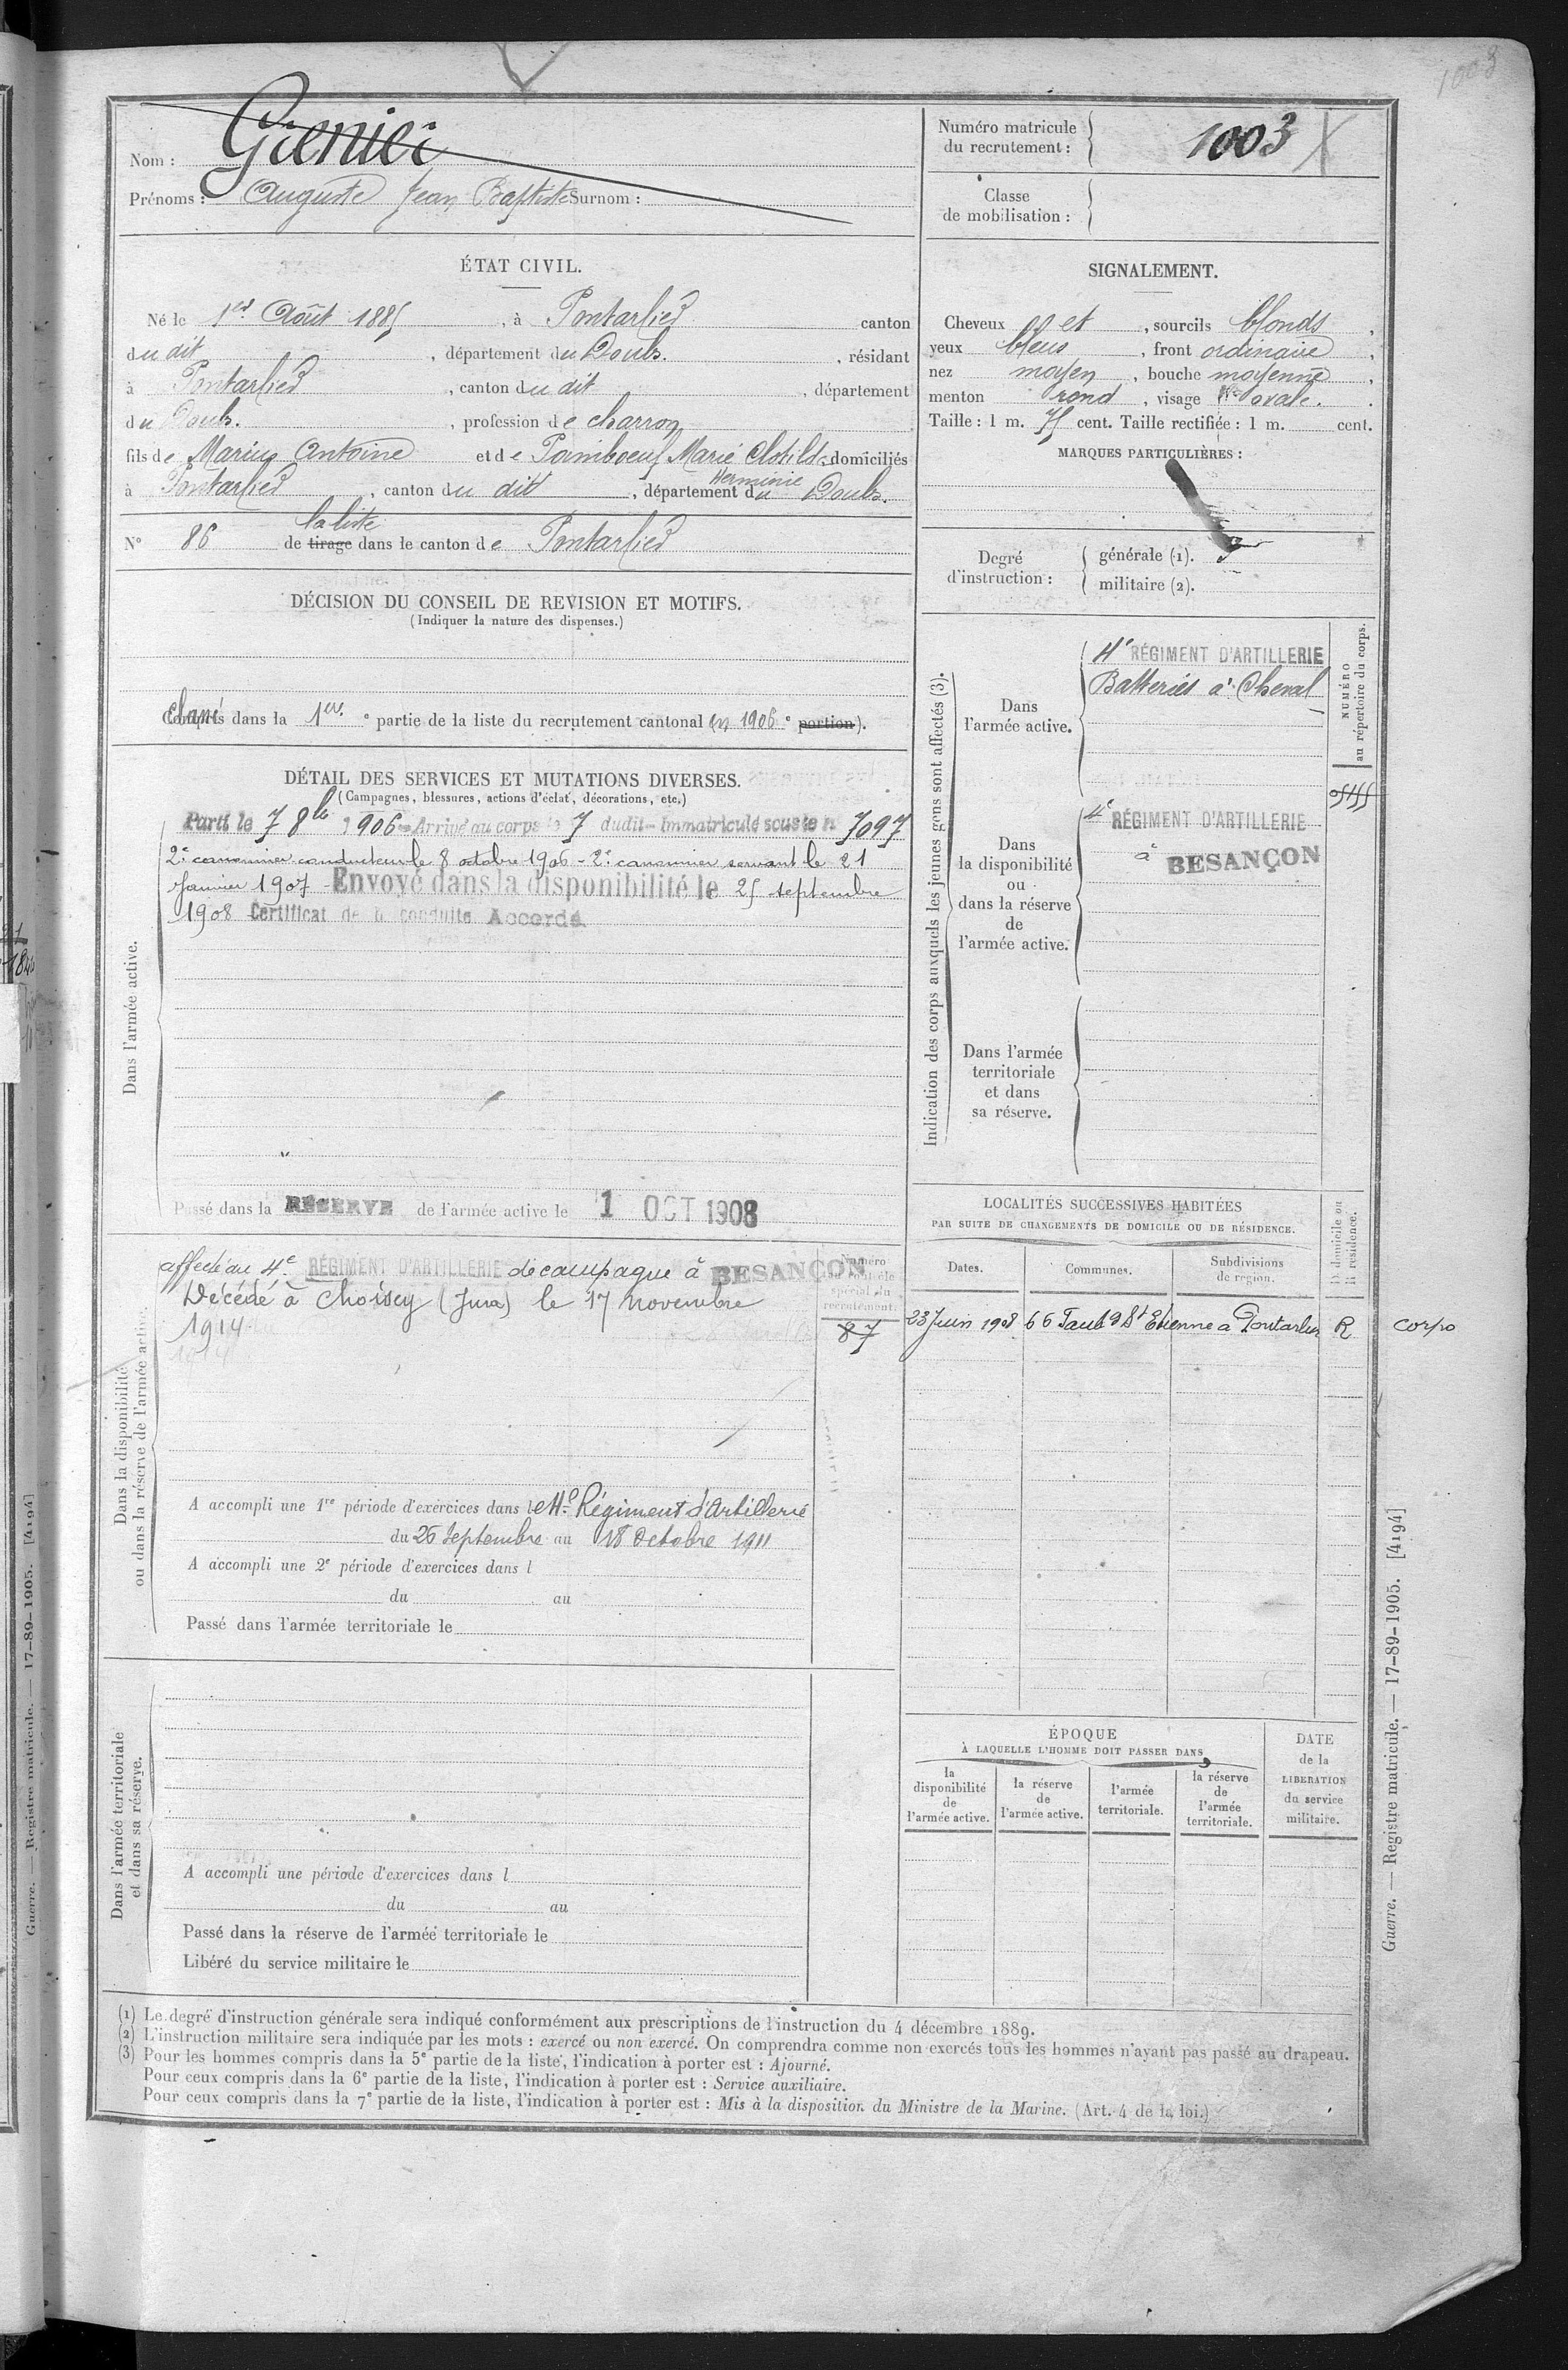 1003
Nom : Grenier
Prénoms : Auguste Jean Baptiste Surnom :
Numéro matricule du recrutement : 1003
Classe de mobilisation :
ÉTAT CIVIL.
Né le 1er Août 1885, à Pontarlier canton
du dit, département du Doubs., résidant
à Pontarlier, canton du dit, département
du Doubs., profession de charron
fils de Marius Antoine et de Paimboeuf Marie Clotilde domiciliés
Herminie
à Pontarlier, canton du dit, département du Doubs.
la liste
N° 86 de tirage dans le canton de Pontarlier
SIGNALEMENT.
Cheveux et, sourcils blonds,
yeux bleus, front ordinaire,
nez moyen, bouche moyenne,
menton rond, visage ovale.
Taille : 1 m. 75 cent. Taille rectifiée : 1 m. cent.
MARQUES PARTICULIÈRES :
Degré d'instruction :
générale (1). 3
militaire (2).
DÉCISION DU CONSEIL DE REVISION ET MOTIFS.
(Indiquer la nature des dispenses.)
Classé dans la 1ere partie de la liste du recrutement cantonal (en 1906 e portion).
DÉTAIL DES SERVICES ET MUTATIONS DIVERSES.
(Campagnes, blessures, actions d'éclat, décorations, etc.)
Dans l'armée active.
Parti le 7 8bre 1906 - Arrivé au corps le 7 dudit - Immatriculé sous le n° 7097
2e canonnier conducteur le 8 octobre 1906 - 2e canonnier servant le 21
Janvier 1907 - Envoyé dans la disponibilité le 25 septembre
1908 Certificat de b. conduite Accordé
Passé dans la RÉSERVE de l'armée active le 1 OCT 1908
Indication des corps auxquels les jeunes gens sont affectés (3).
Dans l'armée active.
4e RÉGIMENT D'ARTILLERIE
Batteries à Cheval
NUMÉRO
au répertoire du corps.
Dans la disponibilité ou dans la réserve de l'armée active.
4e RÉGIMENT D'ARTILLERIE
à BESANÇON
Dans l'armée territoriale et dans sa réserve.
Dans la disponibilité
ou dans la réserve de l'armée active.
affecté au 4e RÉGIMENT D'ARTILLERIE de campagne à BESANÇON
Décédé à Choisey (Jura) le 17 novembre
1914
Numéro au contrôle spécial du recrutement.
87
A accompli une 1re période d'exercices dans le 4e Régiment d'Artillerie
du 26 Septembre au 18 Octobre 1911
A accompli une 2e période d'exercices dans l
du au
Passé dans l'armée territoriale le
LOCALITÉS SUCCESSIVES HABITÉES
PAR SUITE DE CHANGEMENTS DE DOMICILE OU DE RÉSIDENCE.
Dates.
Communes.
Subdivisions de région.
D. domicile ou
R. résidence.
23 Juin 1908 66 Faubg St Etienne à Pontarlier R corps
Dans l'armée territoriale
et dans sa réserve.
A accompli une période d'exercices dans l
du au
Passé dans la réserve de l'armée territoriale le
Libéré du service militaire le
ÉPOQUE
À LAQUELLE L'HOMME DOIT PASSER DANS
la disponibilité de l'armée active.
la réserve de l'armée active.
l'armée territoriale.
la réserve de l'armée territoriale.
DATE de la LIBÉRATION du service militaire.
(1) Le degré d'instruction générale sera indiqué conformément aux prescriptions de l'instruction du 4 décembre 1889.
(2) L'instruction militaire sera indiquée par les mots : exercé ou non exercé. On comprendra comme non exercés tous les hommes n'ayant pas passé au drapeau.
(3) Pour les hommes compris dans la 5e partie de la liste, l'indication à porter est : Ajourné.
Pour ceux compris dans la 6e partie de la liste, l'indication à porter est : Service auxiliaire.
Pour ceux compris dans la 7e partie de la liste, l'indication à porter est : Mis à la disposition du Ministre de la Marine. (Art. 4 de la loi.)
Guerre. — Registre matricule. — 17-89-1905. [4194]
Guerre. — Registre matricule. — 17-89-1905. [4194]